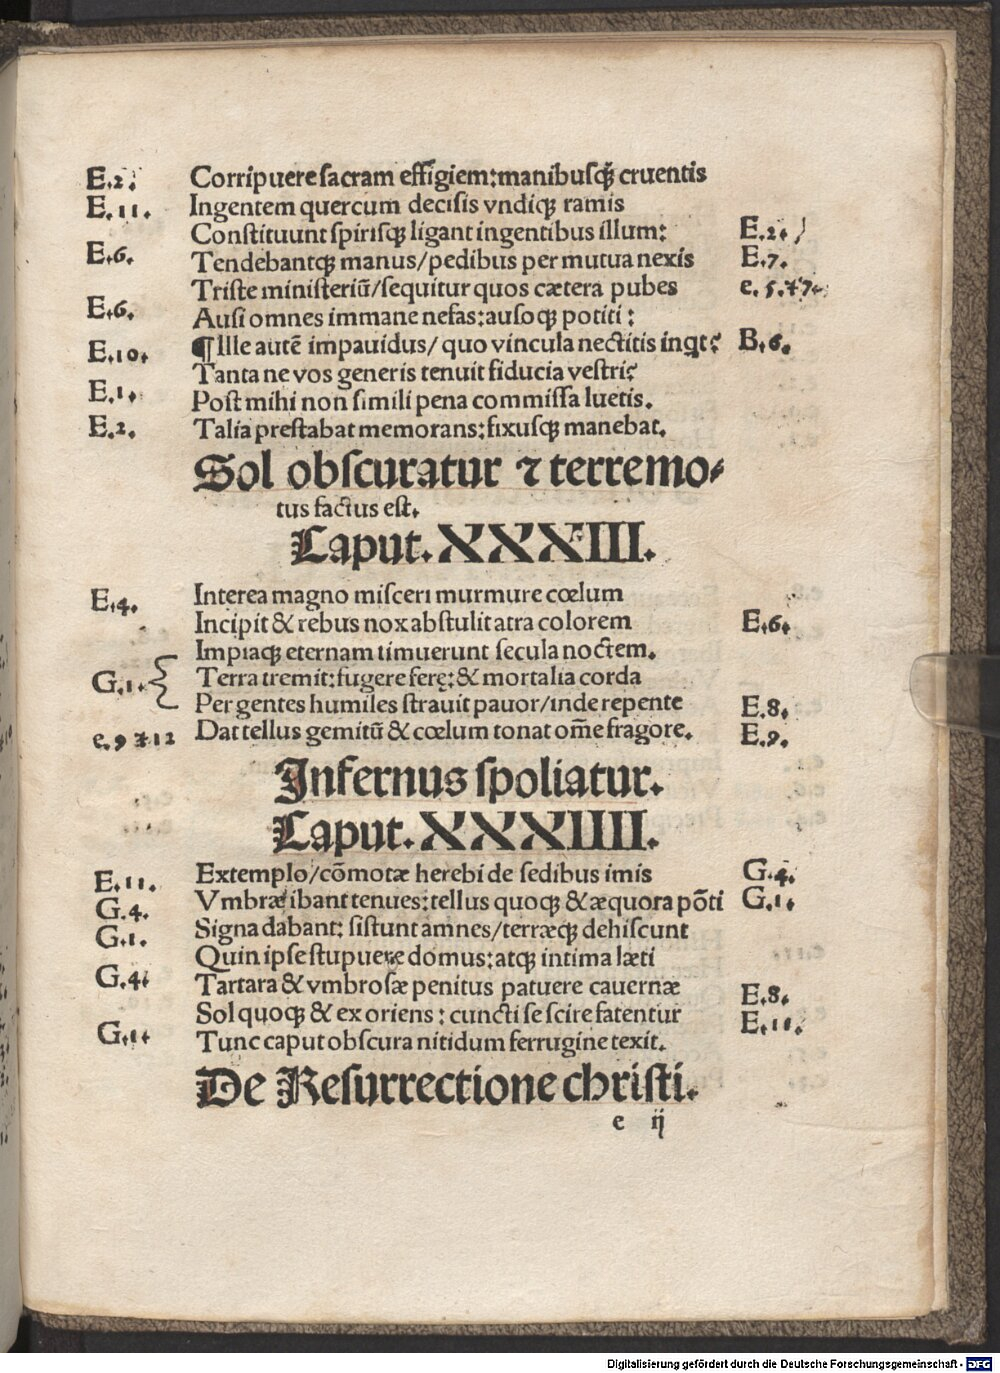 E.2. Corripuere sacram effigiem:manibusqꝫ cruentis
E.11. Ingentem quercum decisis vndiqꝫ ramis
Constituunt spirisqꝫ ligant ingentibus illum: E.2.
E.6. Tendebantqꝫ manus/pedibus per mutua nexis E.7.
Triste ministeriū/sequitur quos cætera pubes e.5.⁊7.
E.6. Ausi omnes immane nefas:ausoqꝫ potiti:
E.10. ¶Ille autē impauidus/quo vincula nectitis inqt? B.6.
Tanta ne vos generis tenuit fiducia vestri?
E.1. Post mihi non simili pena commissa luetis.
E.2. Talia prestabat memorans:fixusqꝫ manebat.
Sol obscuratur ⁊ terremo-
tus factus est.
Caput.XXXIII.
E.4. Interea magno misceri murmure cœlum
Incipit & rebus nox abstulit atra colorem E.6.
Impiaqꝫ eternam timuerunt secula noctem.
G.1. Terra tremit:fugere ferę:& mortalia corda
Per gentes humiles strauit pauor/inde repente E.8.
e.9 ⁊ 12 Dat tellus gemitū & cœlum tonat om̄e fragore. E.9.
Infernus spoliatur.
Caput.XXXIIII.
E.11. Extemplo/cōmotæ herebi de sedibus imis G.4.
G.4. Vmbræ ibant tenues:tellus quoqꝫ & æquora pōti G.1.
G.1. Signa dabant: sistunt amnes/terræqꝫ dehiscunt
Quin ipse stupuere domus:atqꝫ intima læti
G.4. Tartara & vmbrosæ penitus patuere cauernæ E.8.
Sol quoqꝫ & exoriens : cuncti se scire fatentur E.11.
G.1. Tunc caput obscura nitidum ferrugine texit.
De Resurrectione christi.
e ij
Digitalisierung gefördert durch die Deutsche Forschungsgemeinschaft - DFG